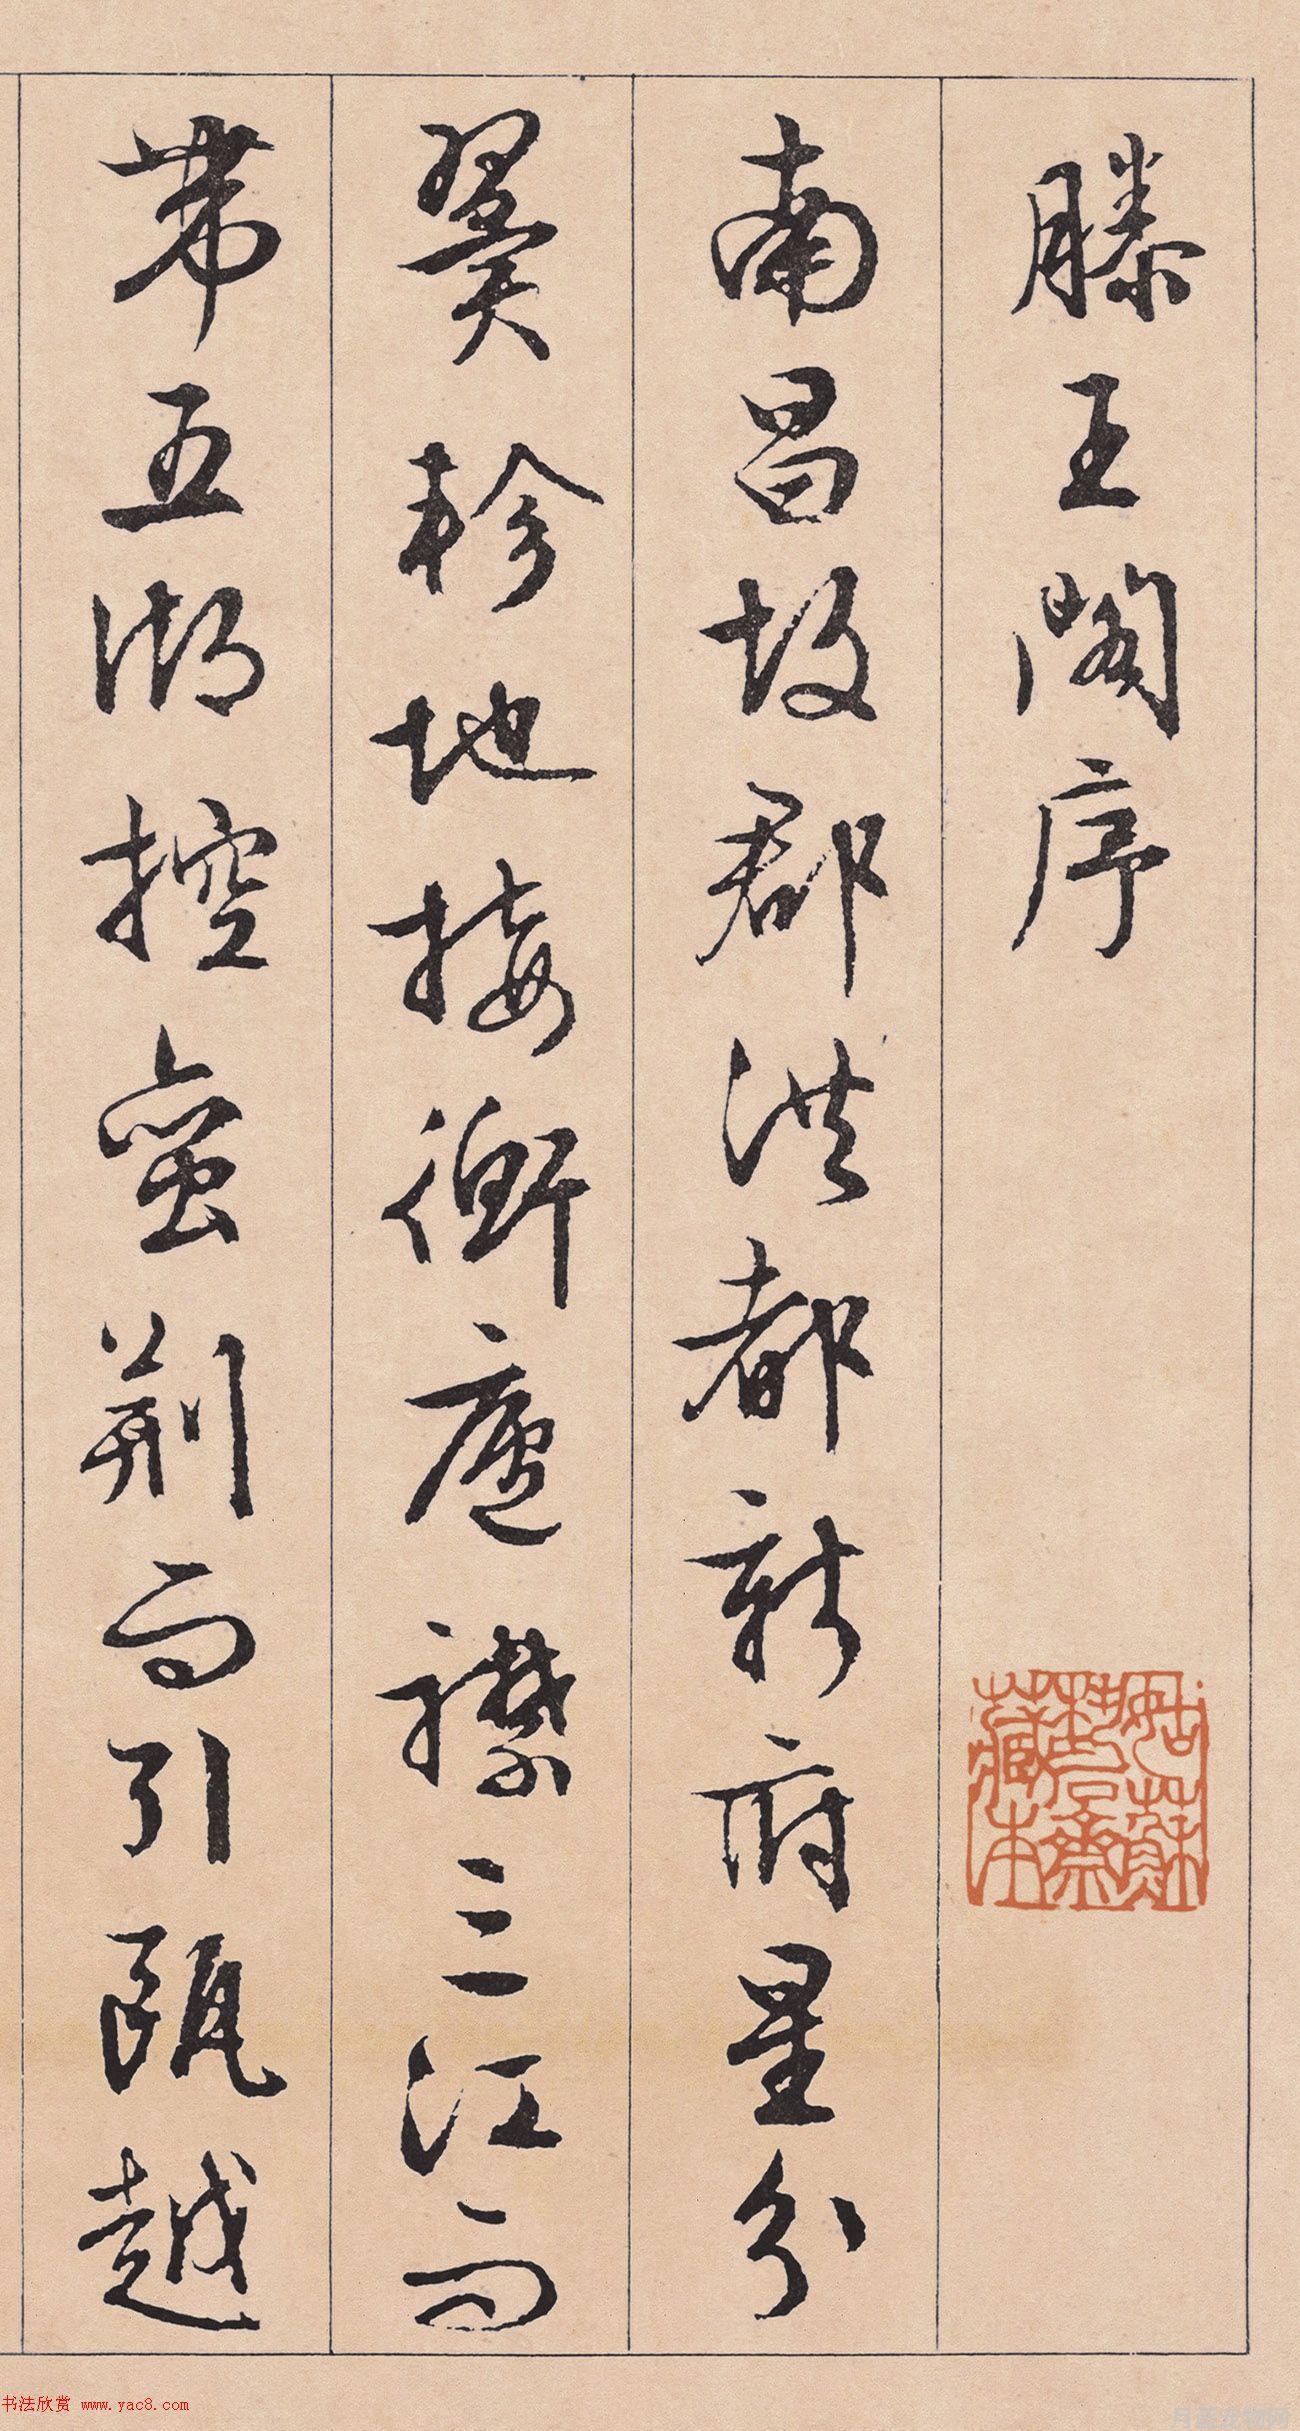 滕王閣序
南昌故郡洪都新府星分
翼軫地接衡廬襟三江而
帶五湖控蠻荆而引甌越
姑蘇
齋
藏本
书法欣赏 www.yac8.com